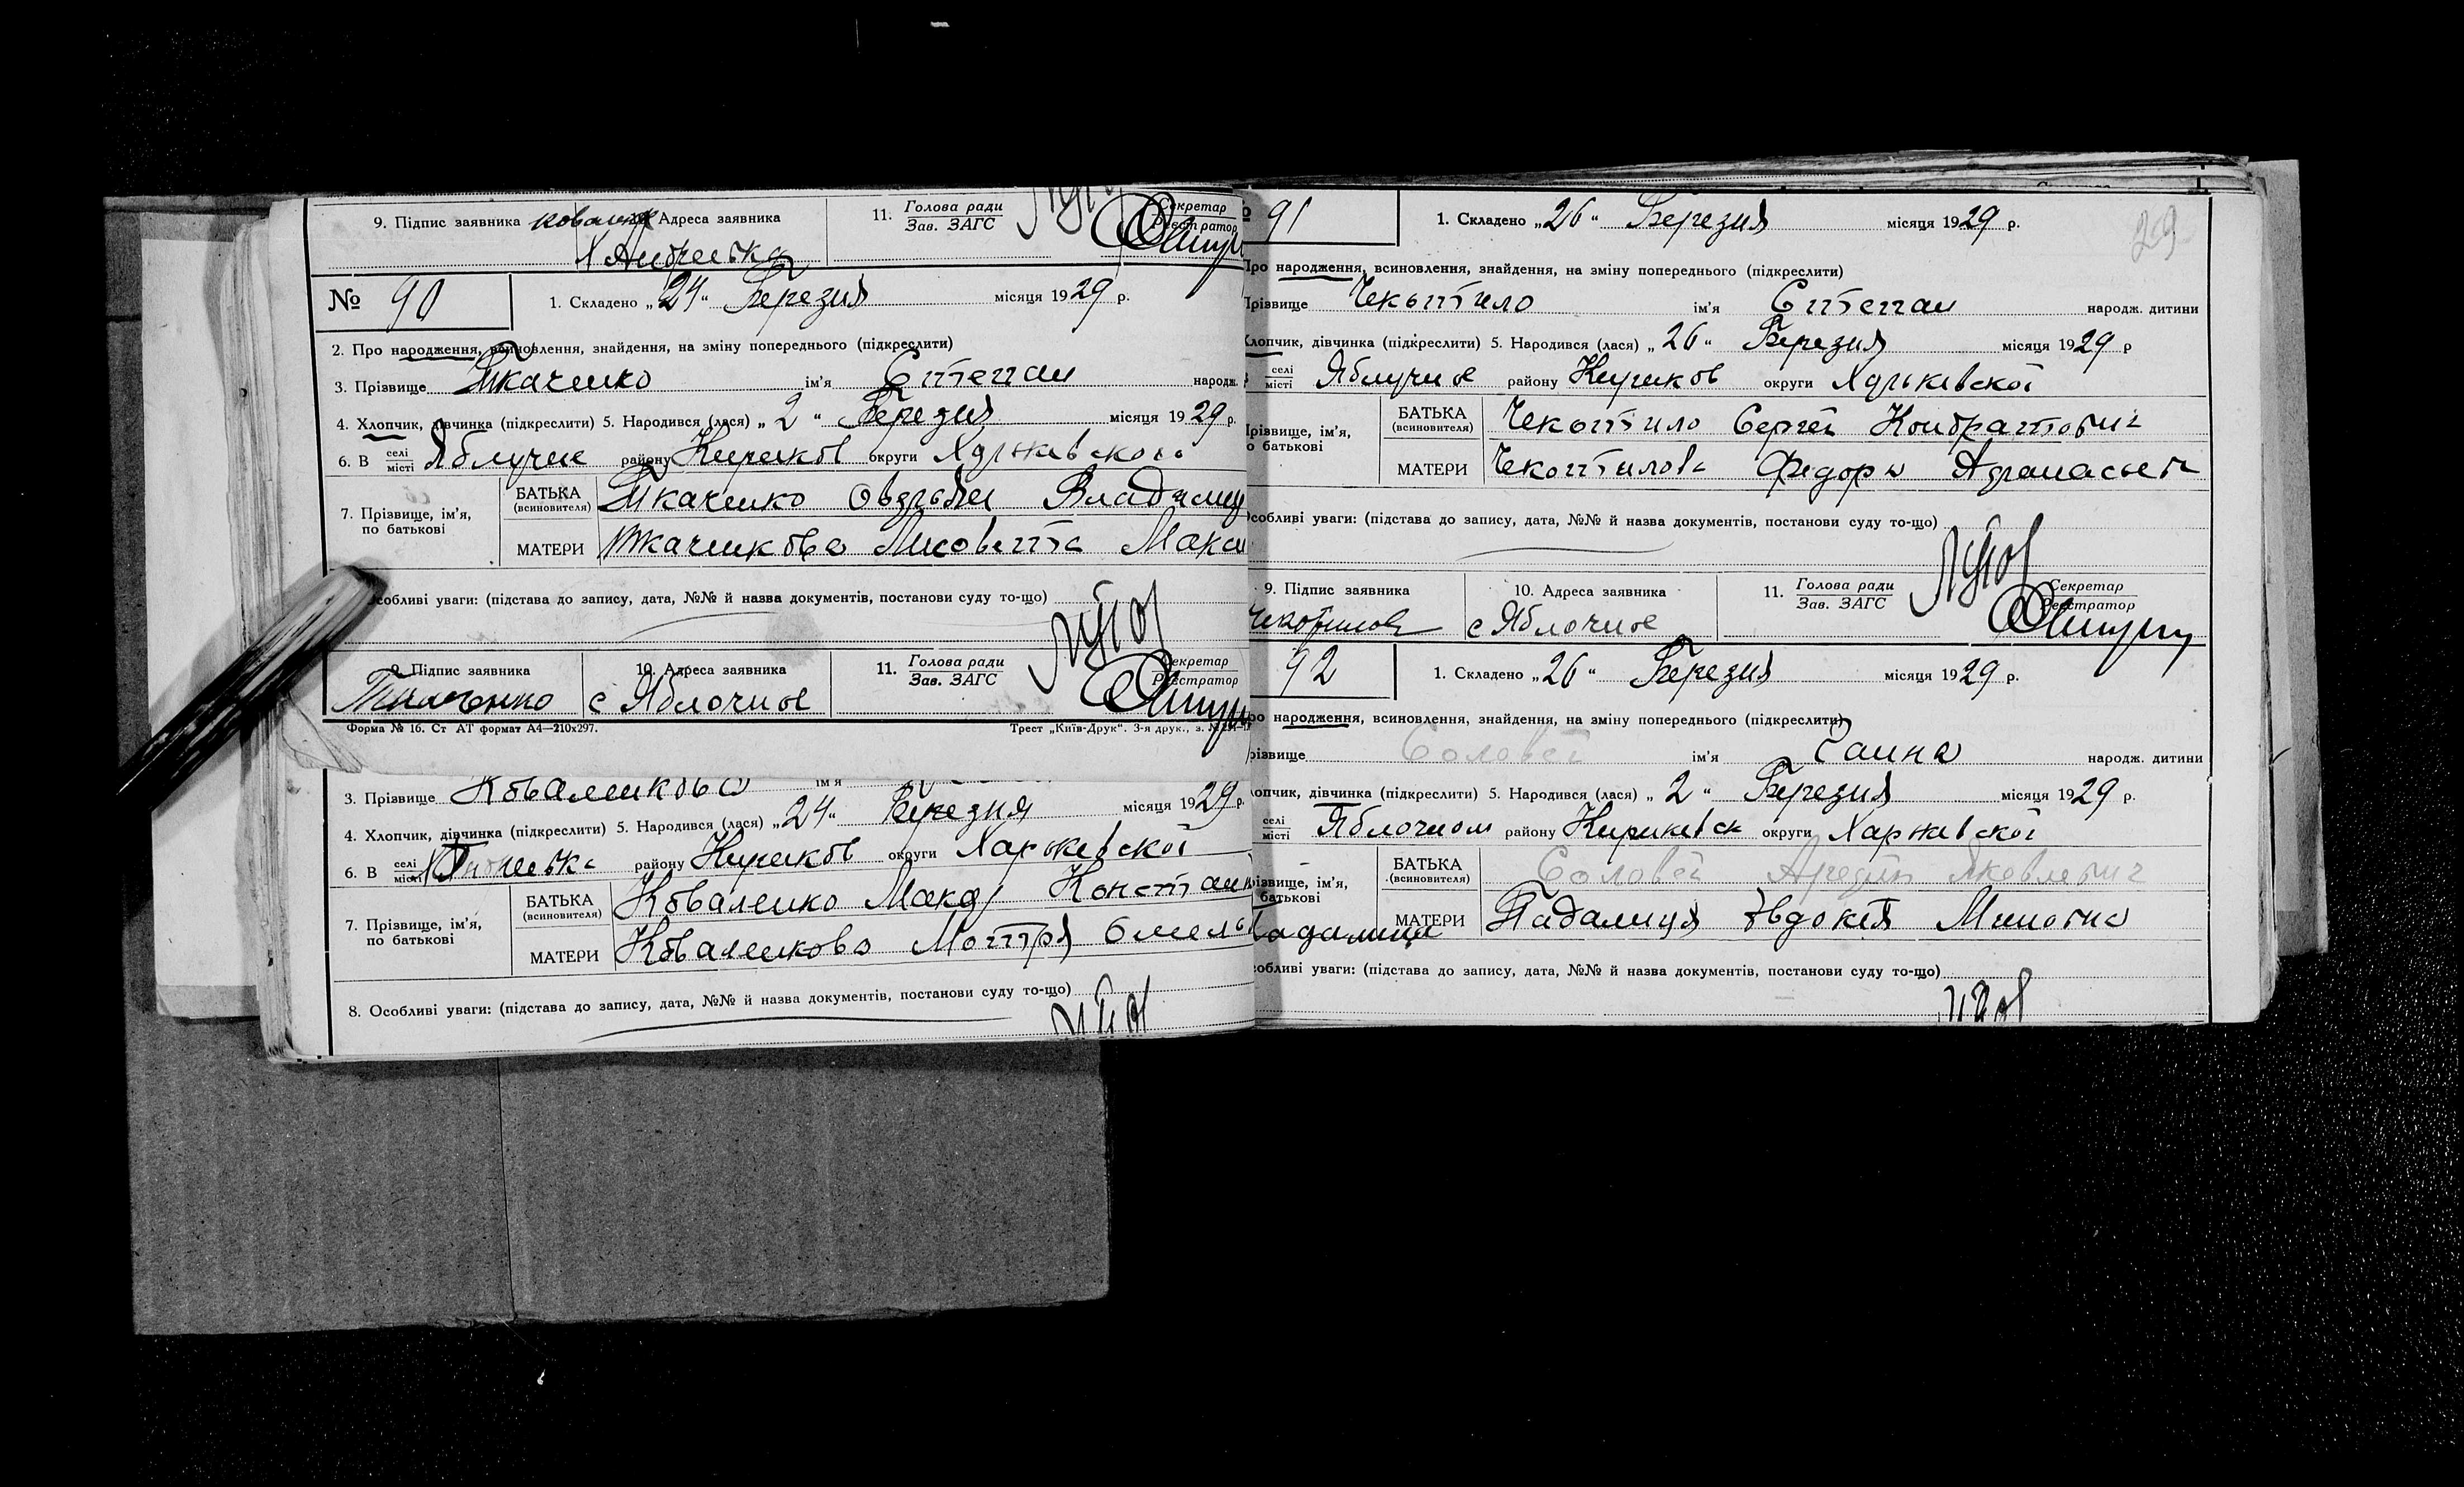 9. Підпис заявника Адреса заявника 11. Голова ради Зав. ЗАГС Секретар Реєстратор
№ 90 1. Складено „24“ Березня місяця 1929 р.
2. Про народження, всиновлення, знайдення, на зміну попереднього (підкреслити)
3. Прізвище Ткаченко ім'я Степан народж.
4. Хлопчик, дівчинка (підкреслити) 5. Народився (лася) „2“ Березня місяця 1929 р.
6. В селі місті Яблучне району Кириков округи Харьківської
7. Прізвище, ім'я, по батькові
БАТЬКА (всиновителя) Ткаченко Владимир
МАТЕРИ Ткаченкова Лисовета Макси
Особливі уваги: (підстава до запису, дата, №№ й назва документів, постанови суду то-що)
9. Підпис заявника 10. Адреса заявника 11. Голова ради Зав. ЗАГС Секретар Реєстратор
Ткаченко с Яблочное
Форма № 16. Ст АТ формат А4—210х297. Трест „Київ-Друк“. 3-я друк., з. №
3. Прізвище Коваленкова ім'я
4. Хлопчик, дівчинка (підкреслити) 5. Народився (лася) „24“ Березня місяця 1929 р.
6. В селі місті району Кириков округи Харьківської
7. Прізвище, ім'я, по батькові
БАТЬКА (всиновителя) Коваленко Макар Констан
МАТЕРИ Коваленкова Мотря Омель
8. Особливі уваги: (підстава до запису, дата, №№ й назва документів, постанови суду то-що)
91 1. Складено „26“ Березня місяця 1929 р. 29
Про народження, всиновлення, знайдення, на зміну попереднього (підкреслити)
Прізвище Чекотило ім'я Степан народж. дитини
Хлопчик, дівчинка (підкреслити) 5. Народився (лася) „26“ Березня місяця 1929 р
селі місті Яблучне району Кириков округи Харьківської
Прізвище, ім'я, по батькові
БАТЬКА (всиновителя) Чекотило Сергей Кондратович
МАТЕРИ Чекотилова Федора Афанасьев
Особливі уваги: (підстава до запису, дата, №№ й назва документів, постанови суду то-що)
9. Підпис заявника 10. Адреса заявника 11. Голова ради Зав. ЗАГС Секретар Реєстратор
с Яблочное
92 1. Складено „26“ Березня місяця 1929 р.
народження, всиновлення, знайдення, на зміну попереднього (підкреслити)
Соловей ім'я Ганна народж. дитини
дівчинка (підкреслити) 5. Народився (лася) „2“ Березня місяця 1929 р.
селі місті Яблочном району Кириківск округи Харківської
ім'я, батькові
БАТЬКА (всиновителя) Соловей Яковлевич
МАТЕРИ Падалиця Явдокія Миновна
Падалиця
уваги: (підстава до запису, дата, №№ й назва документів, постанови суду то-що)